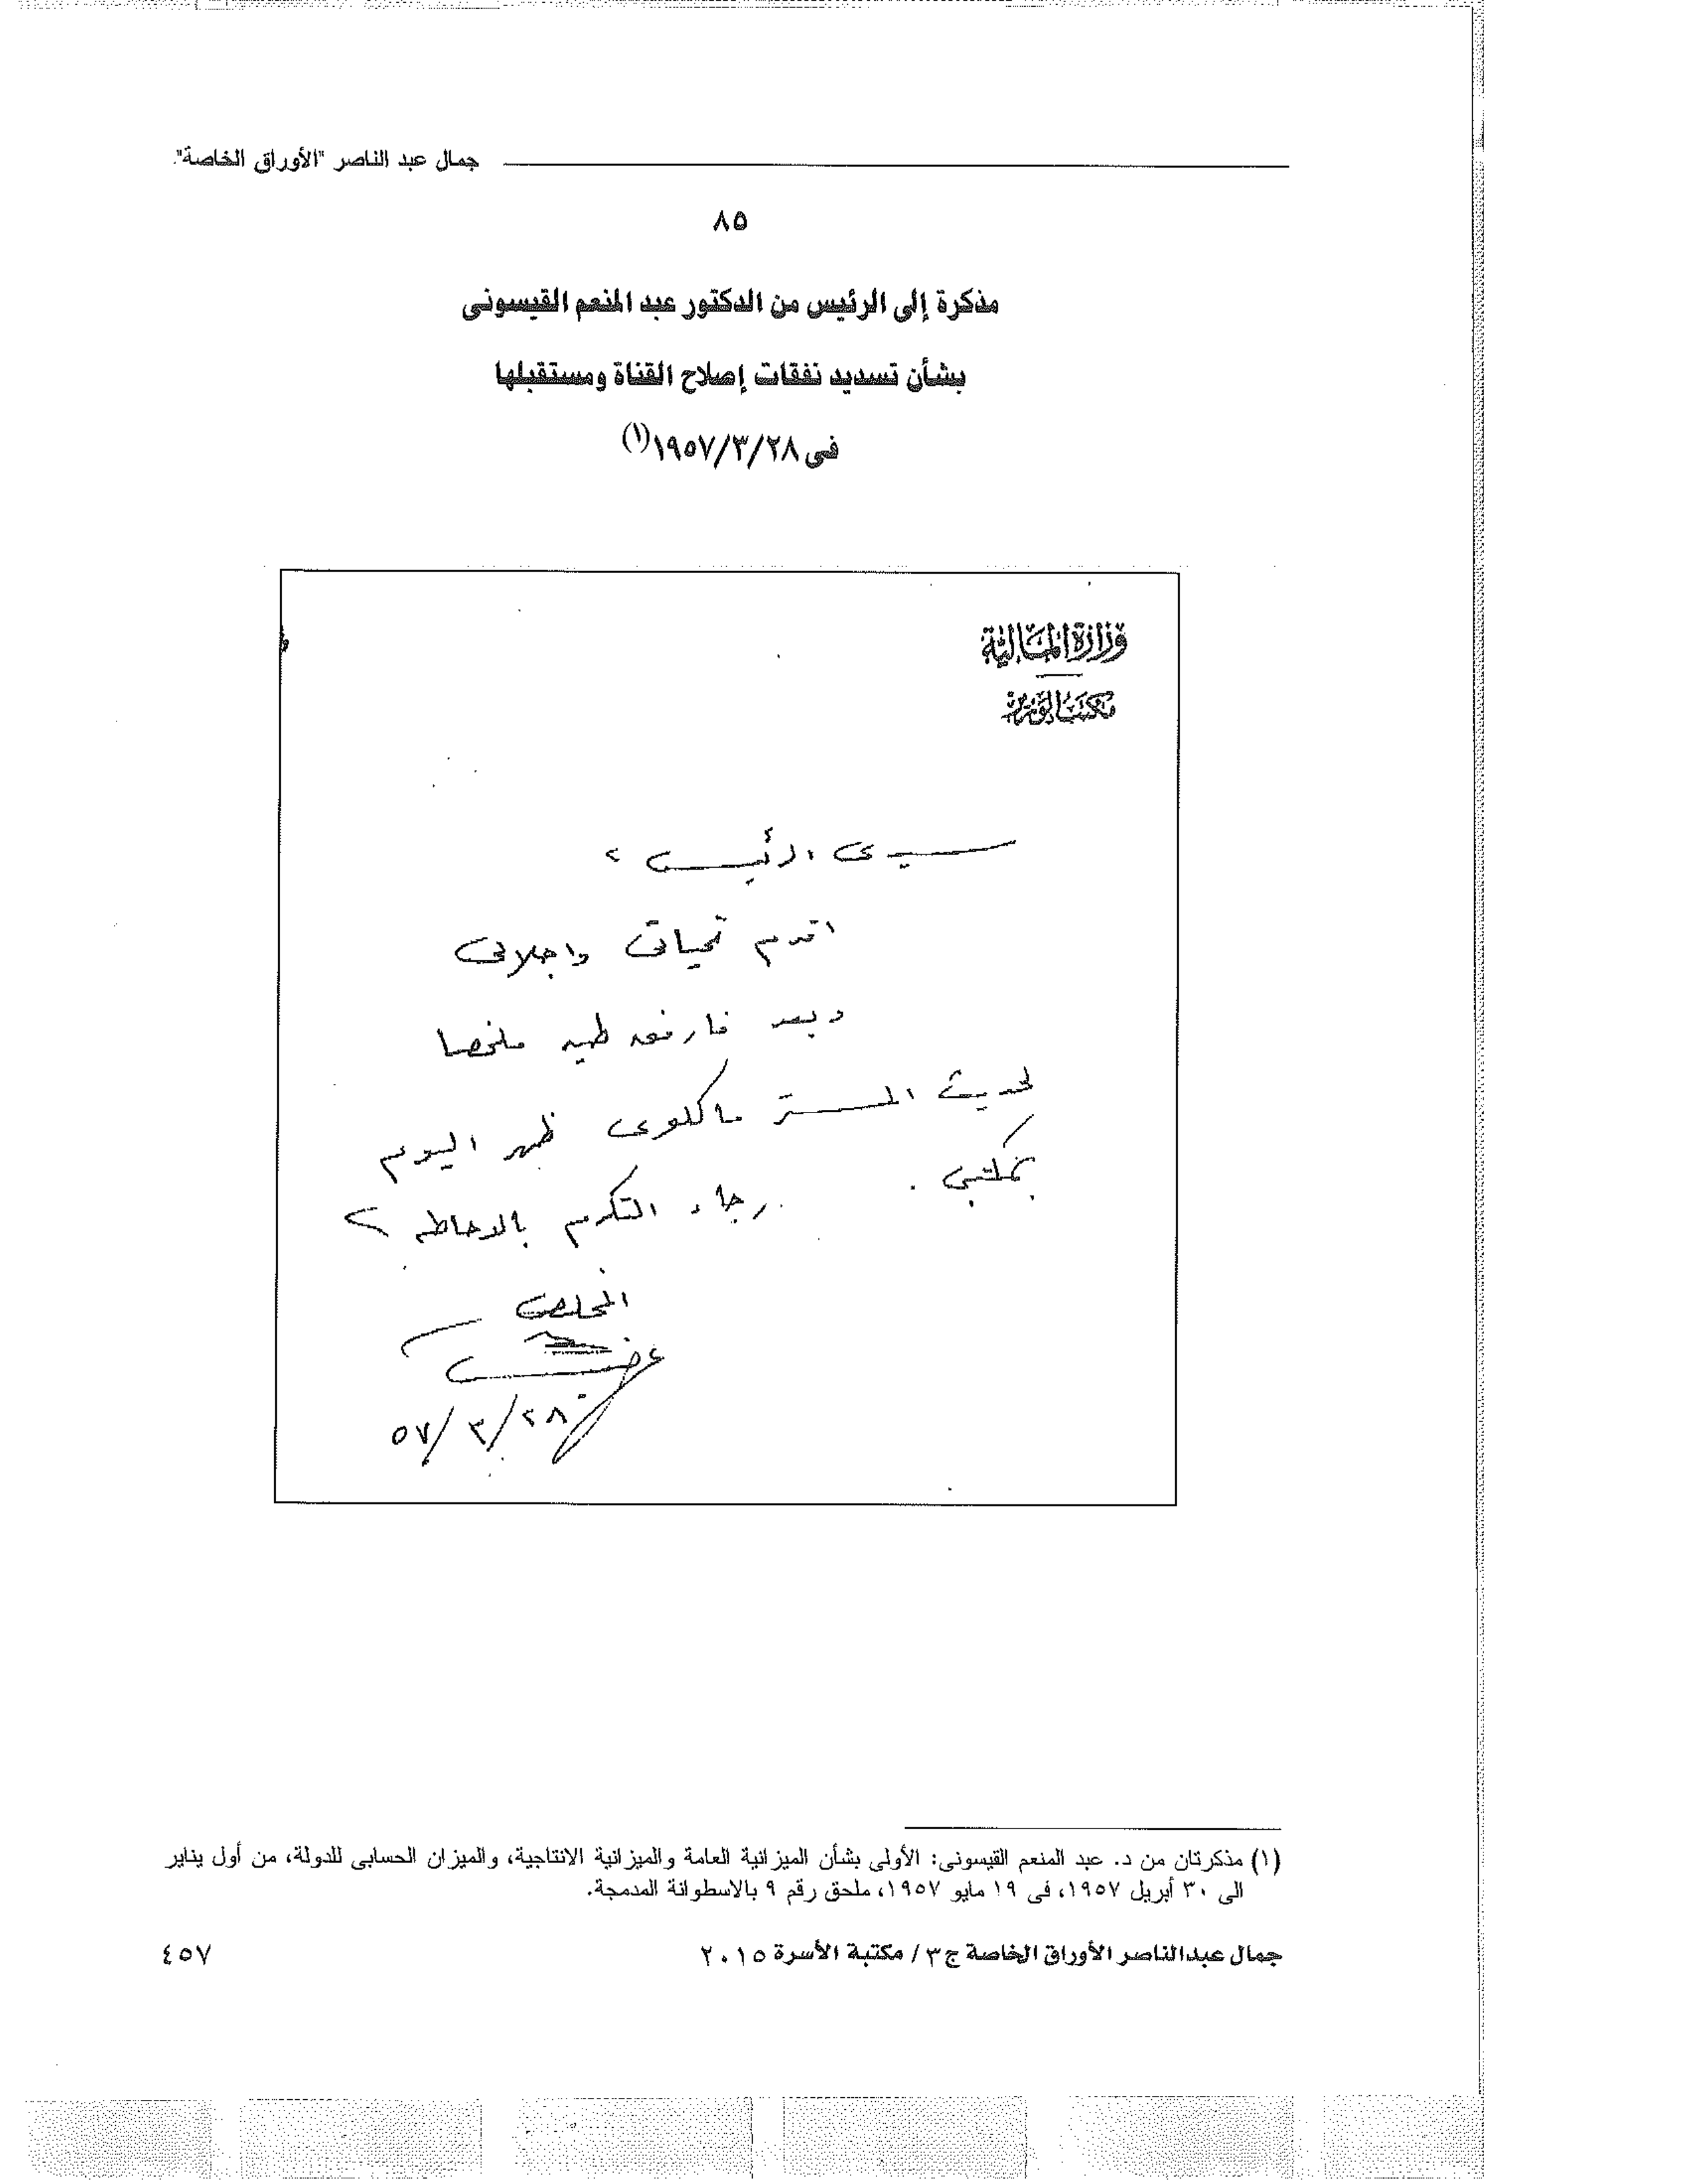 جمال عبد الناصر "الأوراق الخاصة".
٨٥
مذكرة إلى الرئيس من الدكتور عبد المنعم القيسونى
بشأن تسديد نفقات إصلاح القناة ومستقبلها
فى ١٩٥٧/٣/٢٨(١)
وزارة المالية
مكتب الوزير
سيدى الرئيس ،
اقدم تحياتى واجلالى
وبعد فارفع طيه ملخصا
لحديث المستر ماكلوى ظهر اليوم
بمكتبى . رجاء التكرم بالاحاطه
المخلص
٥٧/٣/٢٨
(١) مذكرتان من د. عبد المنعم القيسونى: الأولى بشأن الميزانية العامة والميزانية الانتاجية، والميزان الحسابى للدولة، من أول يناير
الى ٣٠ أبريل ١٩٥٧، فى ١٩ مايو ١٩٥٧، ملحق رقم ٩ بالاسطوانة المدمجة.
جمال عبدالناصر الأوراق الخاصة ج٣ / مكتبة الأسرة ٢٠١٥
٤٥٧